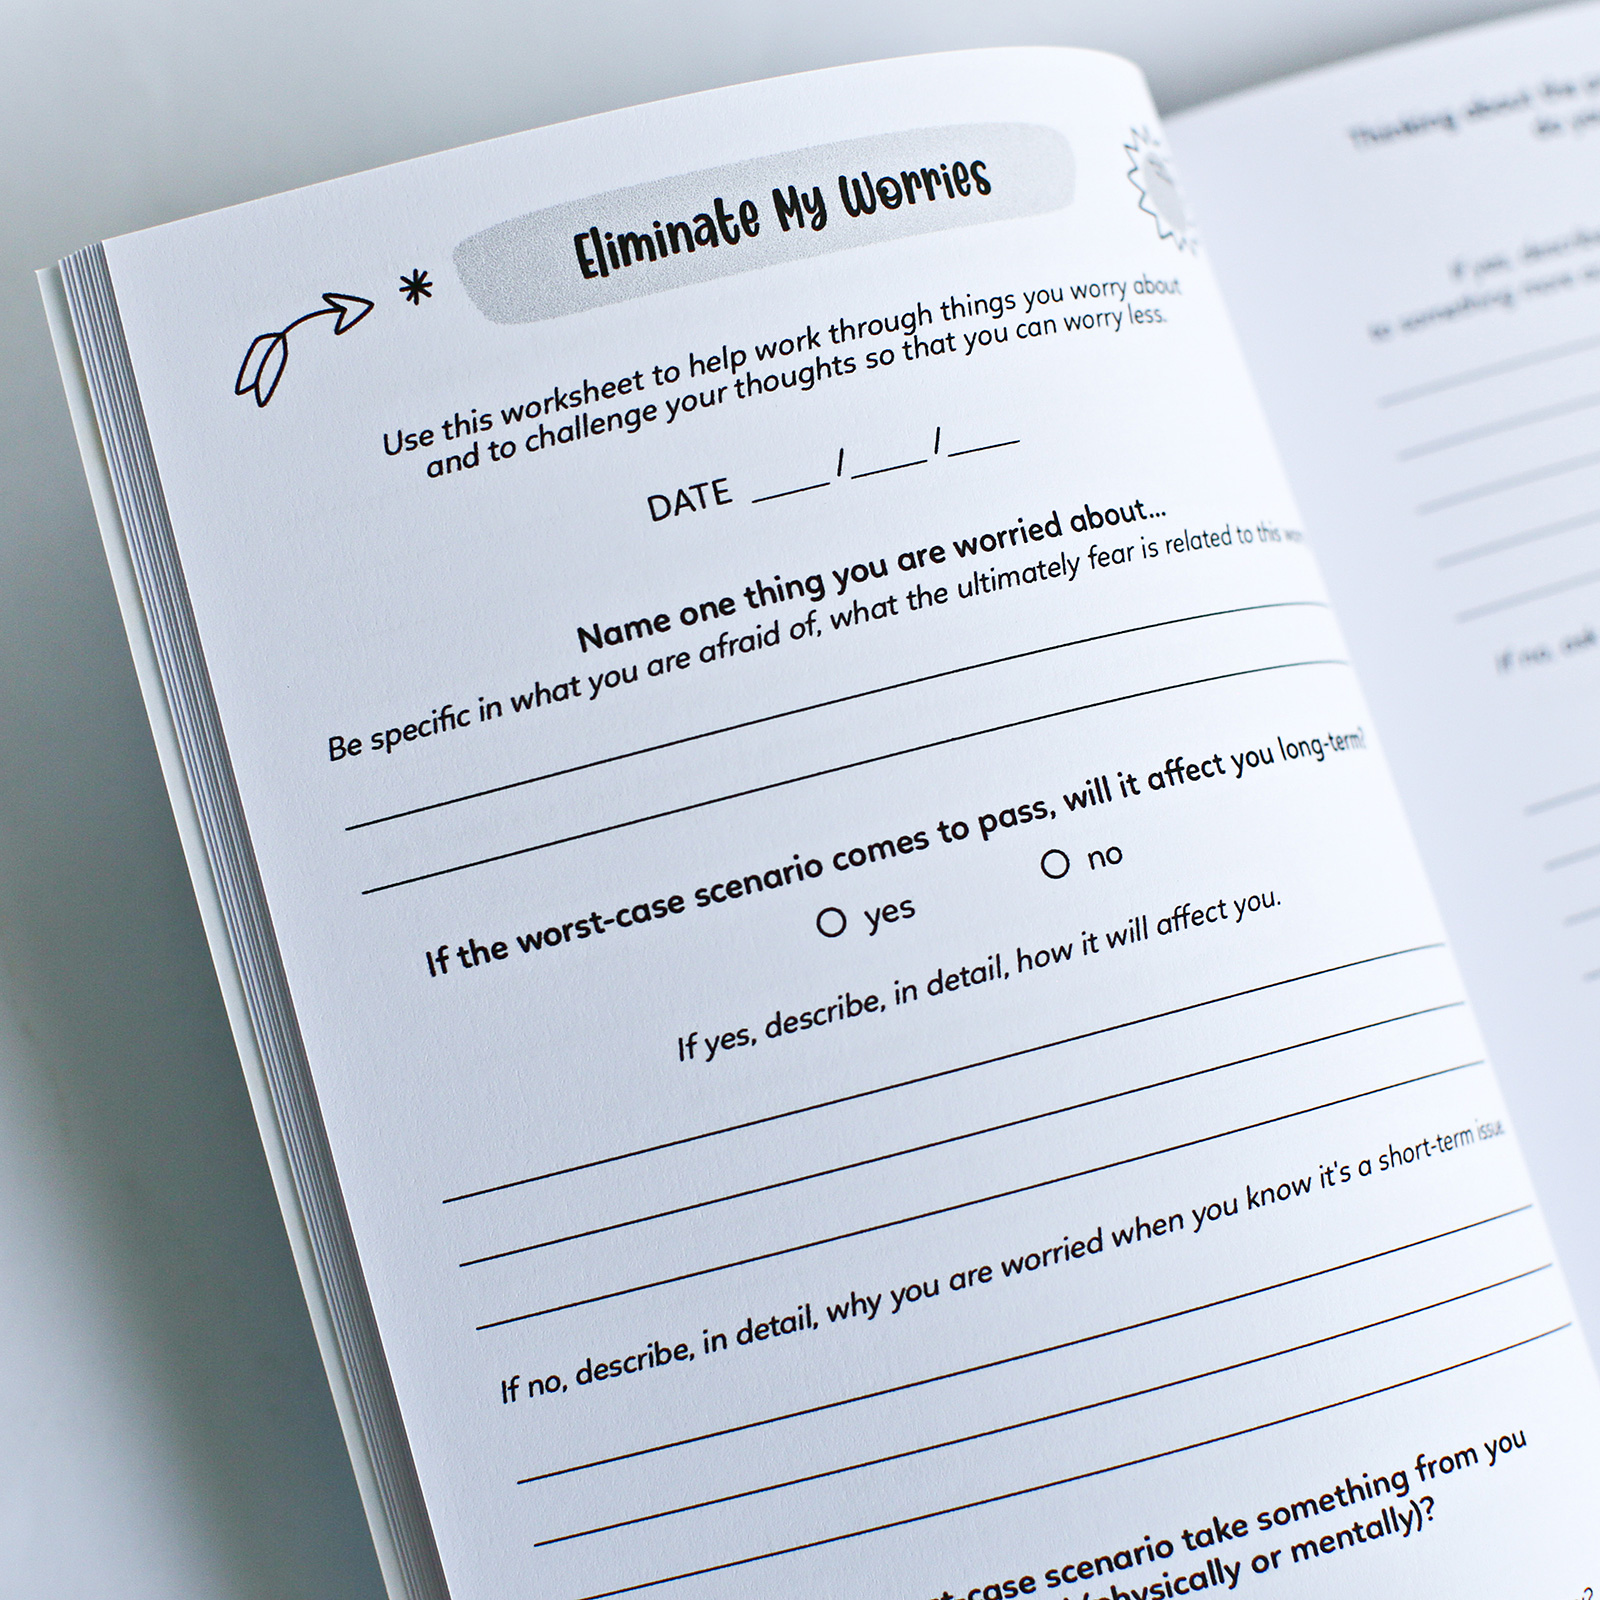 Eliminate My Worries
Use this worksheet to help work through things you worry about
and to challenge your thoughts so that you can worry less.
DATE ____/____/____
Name one thing you are worried about...
Be specific in what you are afraid of, what the ultimately fear is related to this
If the worst-case scenario comes to pass, will it affect you long-term?
yes no
If yes, describe, in detail, how it will affect you.
If no, describe, in detail, why you are worried when you know it's a short-term issue.
scenario take something from you
physically or mentally)?
Thinking about the
If yes, describe
to something more
If no, ask